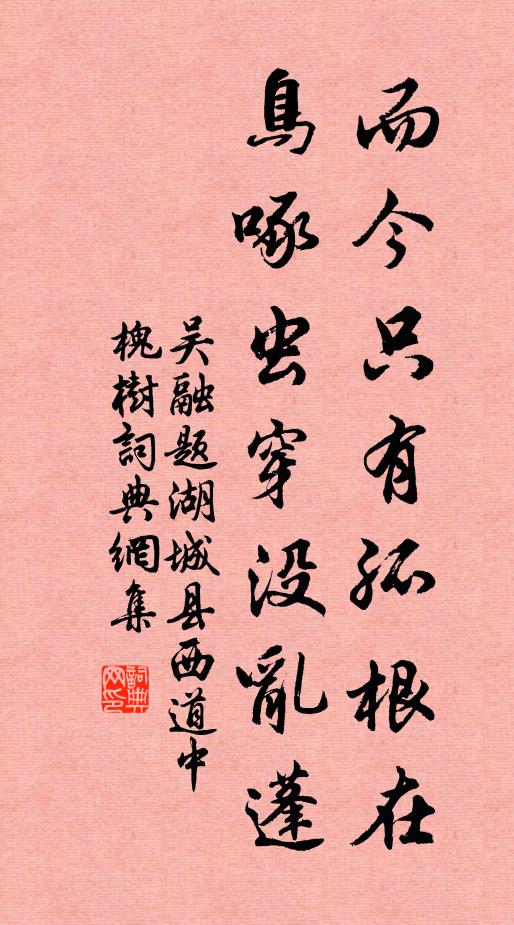 而今只有孤根在
鳥啄虫穿没亂蓬
吴融题湖城县西道中
槐樹詞典網集
詞典
网印